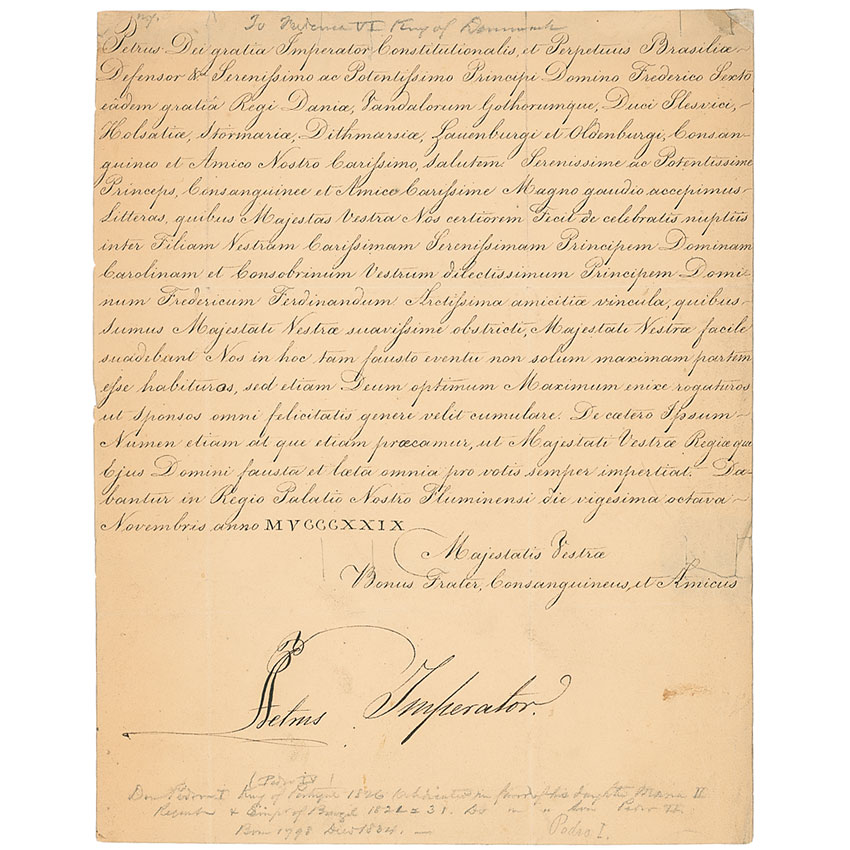 To Frederick VI King of Denmark
Petrus Dei gratia Imperator Constitutionalis, et Perpetuus Brasiliæ
Defensor &ª Serenissimo ac Potentissimo Principi Domino Frederico Sexto
eâdem gratiâ Regi Daniæ, Vandalorum Gothorumque, Duci Slesvici,
Holsatiæ, Stormariæ, Dithmarsiæ, Lauenburgi et Oldenburgi, Consan-
guineo et Amico Nostro Carissimo, Salutem. Serenissime ac Potentissime
Princeps, Consanguinee et Amice Carissime Magno gaudio accepimus
Litteras, quibus Majestas Vestra Nos certiorem Fecit de celebratis nuptiis
inter Filiam Vestram Carissimam Serenissimam Principem Dominam
Carolinam et Consobrinum Vestrum dilectissimum Principem Domi-
num Fredericum Ferdinandum Arctissima amicitiæ vincula, quibus
sumus Majestati Vestræ suavissime obstricti, Majestati Vestræ facile
suadebunt Nos in hoc tam fausto eventu non solum maximam partem
esse habituros, sed etiam Deum optimum Maximum enixe rogaturos
ut Sponsos omni felicitatis genere velit cumulare. De cætero Ipsum
Numen etiam at que etiam præcamur, ut Majestati Vestræ Regiæ que
Ejus Domini fausta et læta omnia pro votis semper impertiat. Da-
bantur in Regio Palatio Nostro Fluminensi die vigesima octava
Novembris anno MVCCCXXIX
Majestatis Vestræ
Bonus Frater, Consanguineus, et Amicus
Petrus Imperator.
(Pedro IV)
Dom Pedro I King of Portugal 1826 Abdicated in favor of his daughter Maria II
Regent & Emp. of Brazil 1822=31. Do " " Son Pedro II.
Born 1798 Died 1834. —
Pedro I.